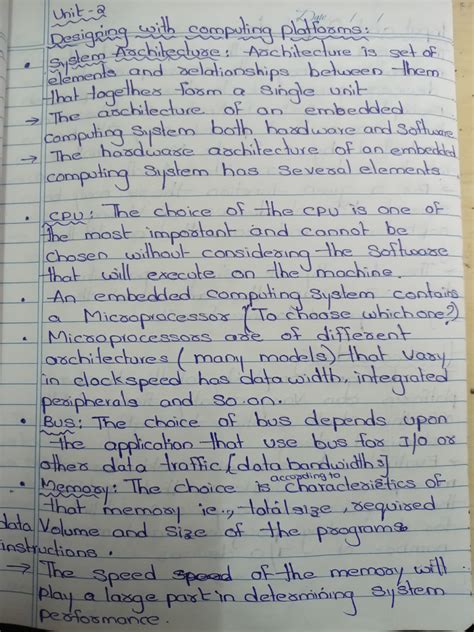 Unit-2
Date / /
Designing with computing platforms:
• System Architecture: Architecture is set of
elements and relationships between them
that together form a single unit
→ The architecture of an embedded
computing system both hardware and software
→ The hardware architecture of an embedded
computing system has several elements
• CPU: The choice of the CPU is one of
the most important and cannot be
chosen without considering the software
that will execute on the machine.
• An embedded computing system contains
a Microprocessor (To choose which one?)
• Microprocessors are of different
architectures (many models) that vary
in clockspeed has data width, integrated
peripherals and so on.
• Bus: The choice of bus depends upon
the application that use bus for I/O or
other data traffic [data bandwidths]
• Memory: The choice is according to characteristics of
that memory ie., total size, required
data Volume and size of the programs
instructions.
→ The speed speed of the memory will
play a large part in determining system
performance.